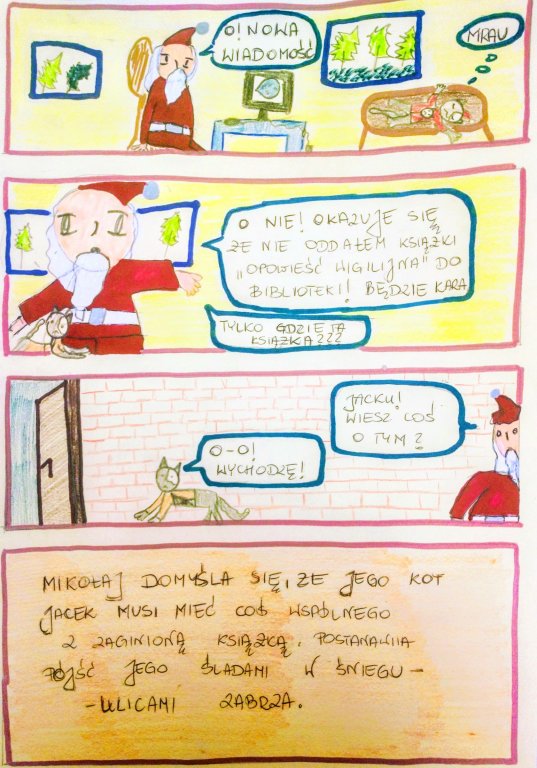 O! NOWA
WIADOMOŚĆ
MRAU
O NIE! OKAZUJE SIĘ
ŻE NIE ODDAŁEM KSIĄŻKI
„OPOWIEŚĆ WIGILIJNA" DO
BIBLIOTEKI! BĘDZIE KARA
TYLKO GDZIE TA
KSIĄŻKA???
JACKU!
WIESZ COŚ
O TYM?
O-O!
WYCHODZĘ!
1
MIKOŁAJ DOMYŚLA SIĘ, ŻE JEGO KOT
JACEK MUSI MIEĆ COŚ WSPÓLNEGO
Z ZAGINIONĄ KSIĄŻKĄ. POSTANAWIA
PÓJŚĆ JEGO ŚLADAMI W ŚNIEGU -
- ULICAMI ZABRZA.